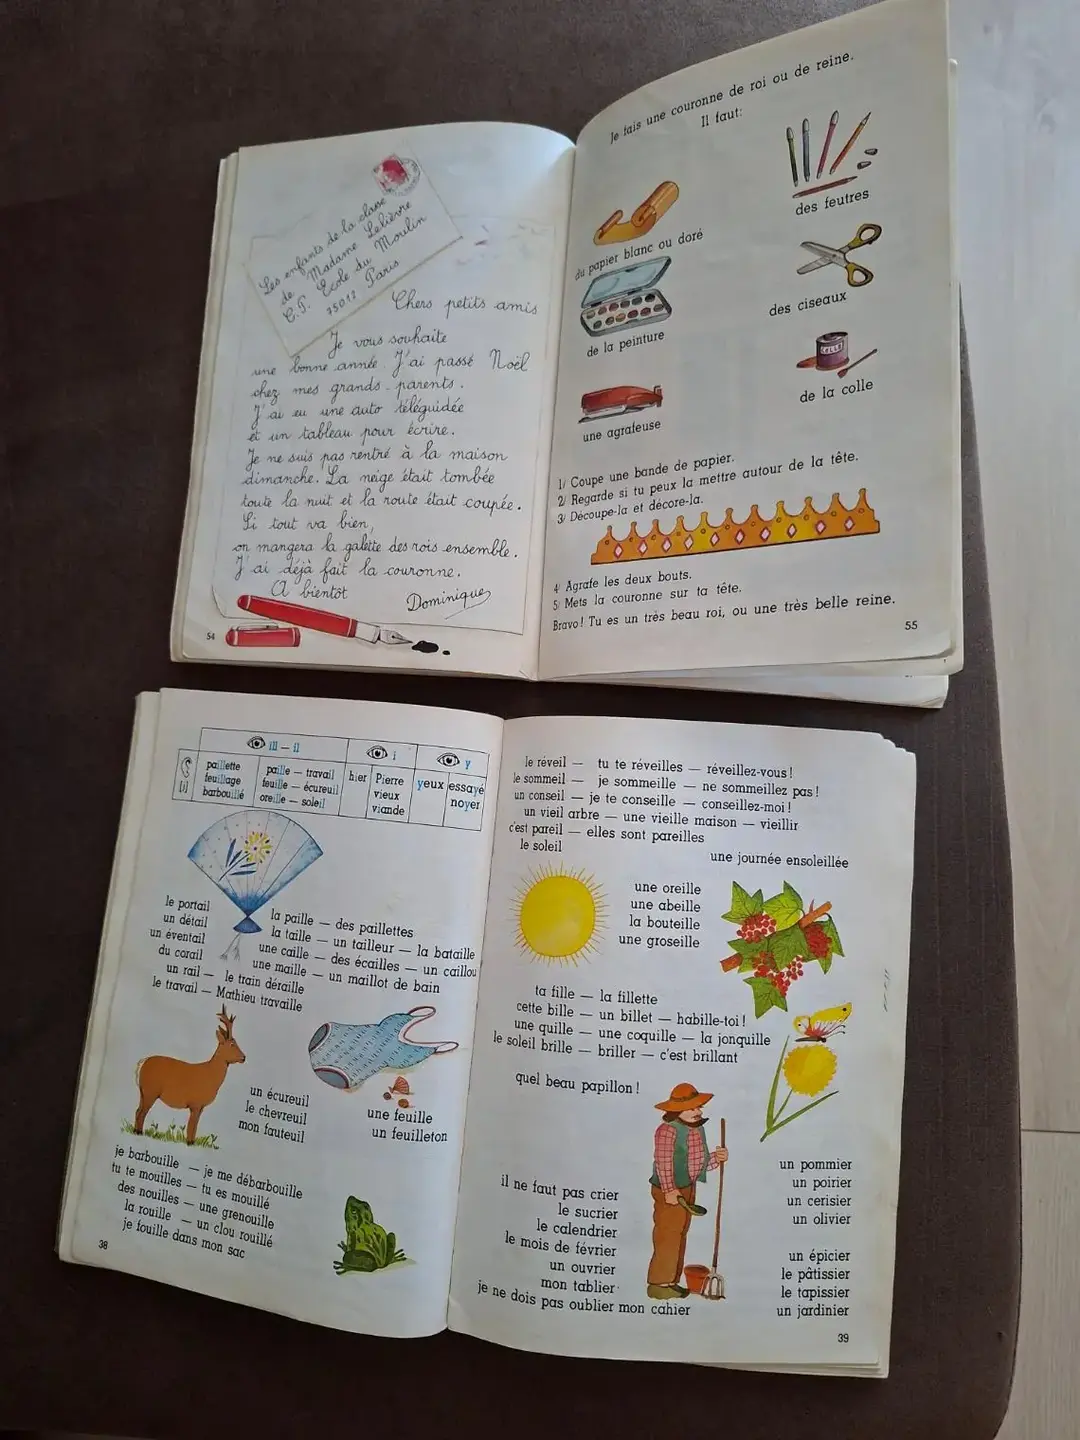 Les enfants de la classe
de Madame Lelièvre
C.P. Ecole du Moulin
75012 Paris
Chers petits amis
Je vous souhaite
une bonne année. J'ai passé Noël
chez mes grands-parents.
J'ai eu une auto téléguidée
et un tableau pour écrire.
Je ne suis pas rentré à la maison
dimanche. La neige était tombée
toute la nuit et la route était coupée.
Si tout va bien,
on mangera la galette des rois ensemble.
J'ai déjà fait la couronne.
A bientôt
Dominique
54
Je fais une couronne de roi ou de reine.
Il faut:
du papier blanc ou doré
des feutres
de la peinture
des ciseaux
une agrafeuse
COLLE
de la colle
1/ Coupe une bande de papier.
2/ Regarde si tu peux la mettre autour de la tête.
3/ Découpe-la et décore-la.
4/ Agrafe les deux bouts.
5/ Mets la couronne sur ta tête.
Bravo! Tu es un très beau roi, ou une très belle reine.
55
ill — il
i
y
[j]
paillette
feuillage
barbouillé
paille — travail
feuille — écureuil
oreille — soleil
hier
Pierre
vieux
viande
yeux
essayé
noyer
le portail
un détail
un éventail
du corail
un rail — le train déraille
le travail — Mathieu travaille
la paille — des paillettes
la taille — un tailleur — la bataille
une caille — des écailles — un caillou
une maille — un maillot de bain
un écureuil
le chevreuil
mon fauteuil
une feuille
un feuilleton
je barbouille — je me débarbouille
tu te mouilles — tu es mouillé
des nouilles — une grenouille
la rouille — un clou rouillé
je fouille dans mon sac
38
le réveil — tu te réveilles — réveillez-vous!
le sommeil — je sommeille — ne sommeillez pas!
un conseil — je te conseille — conseillez-moi!
un vieil arbre — une vieille maison — vieillir
c'est pareil — elles sont pareilles
le soleil
une journée ensoleillée
une oreille
une abeille
la bouteille
une groseille
ta fille — la fillette
cette bille — un billet — habille-toi!
une quille — une coquille — la jonquille
le soleil brille — briller — c'est brillant
quel beau papillon!
il ne faut pas crier
le sucrier
le calendrier
le mois de février
un ouvrier
mon tablier
je ne dois pas oublier mon cahier
un pommier
un poirier
un cerisier
un olivier
un épicier
le pâtissier
le tapissier
un jardinier
39